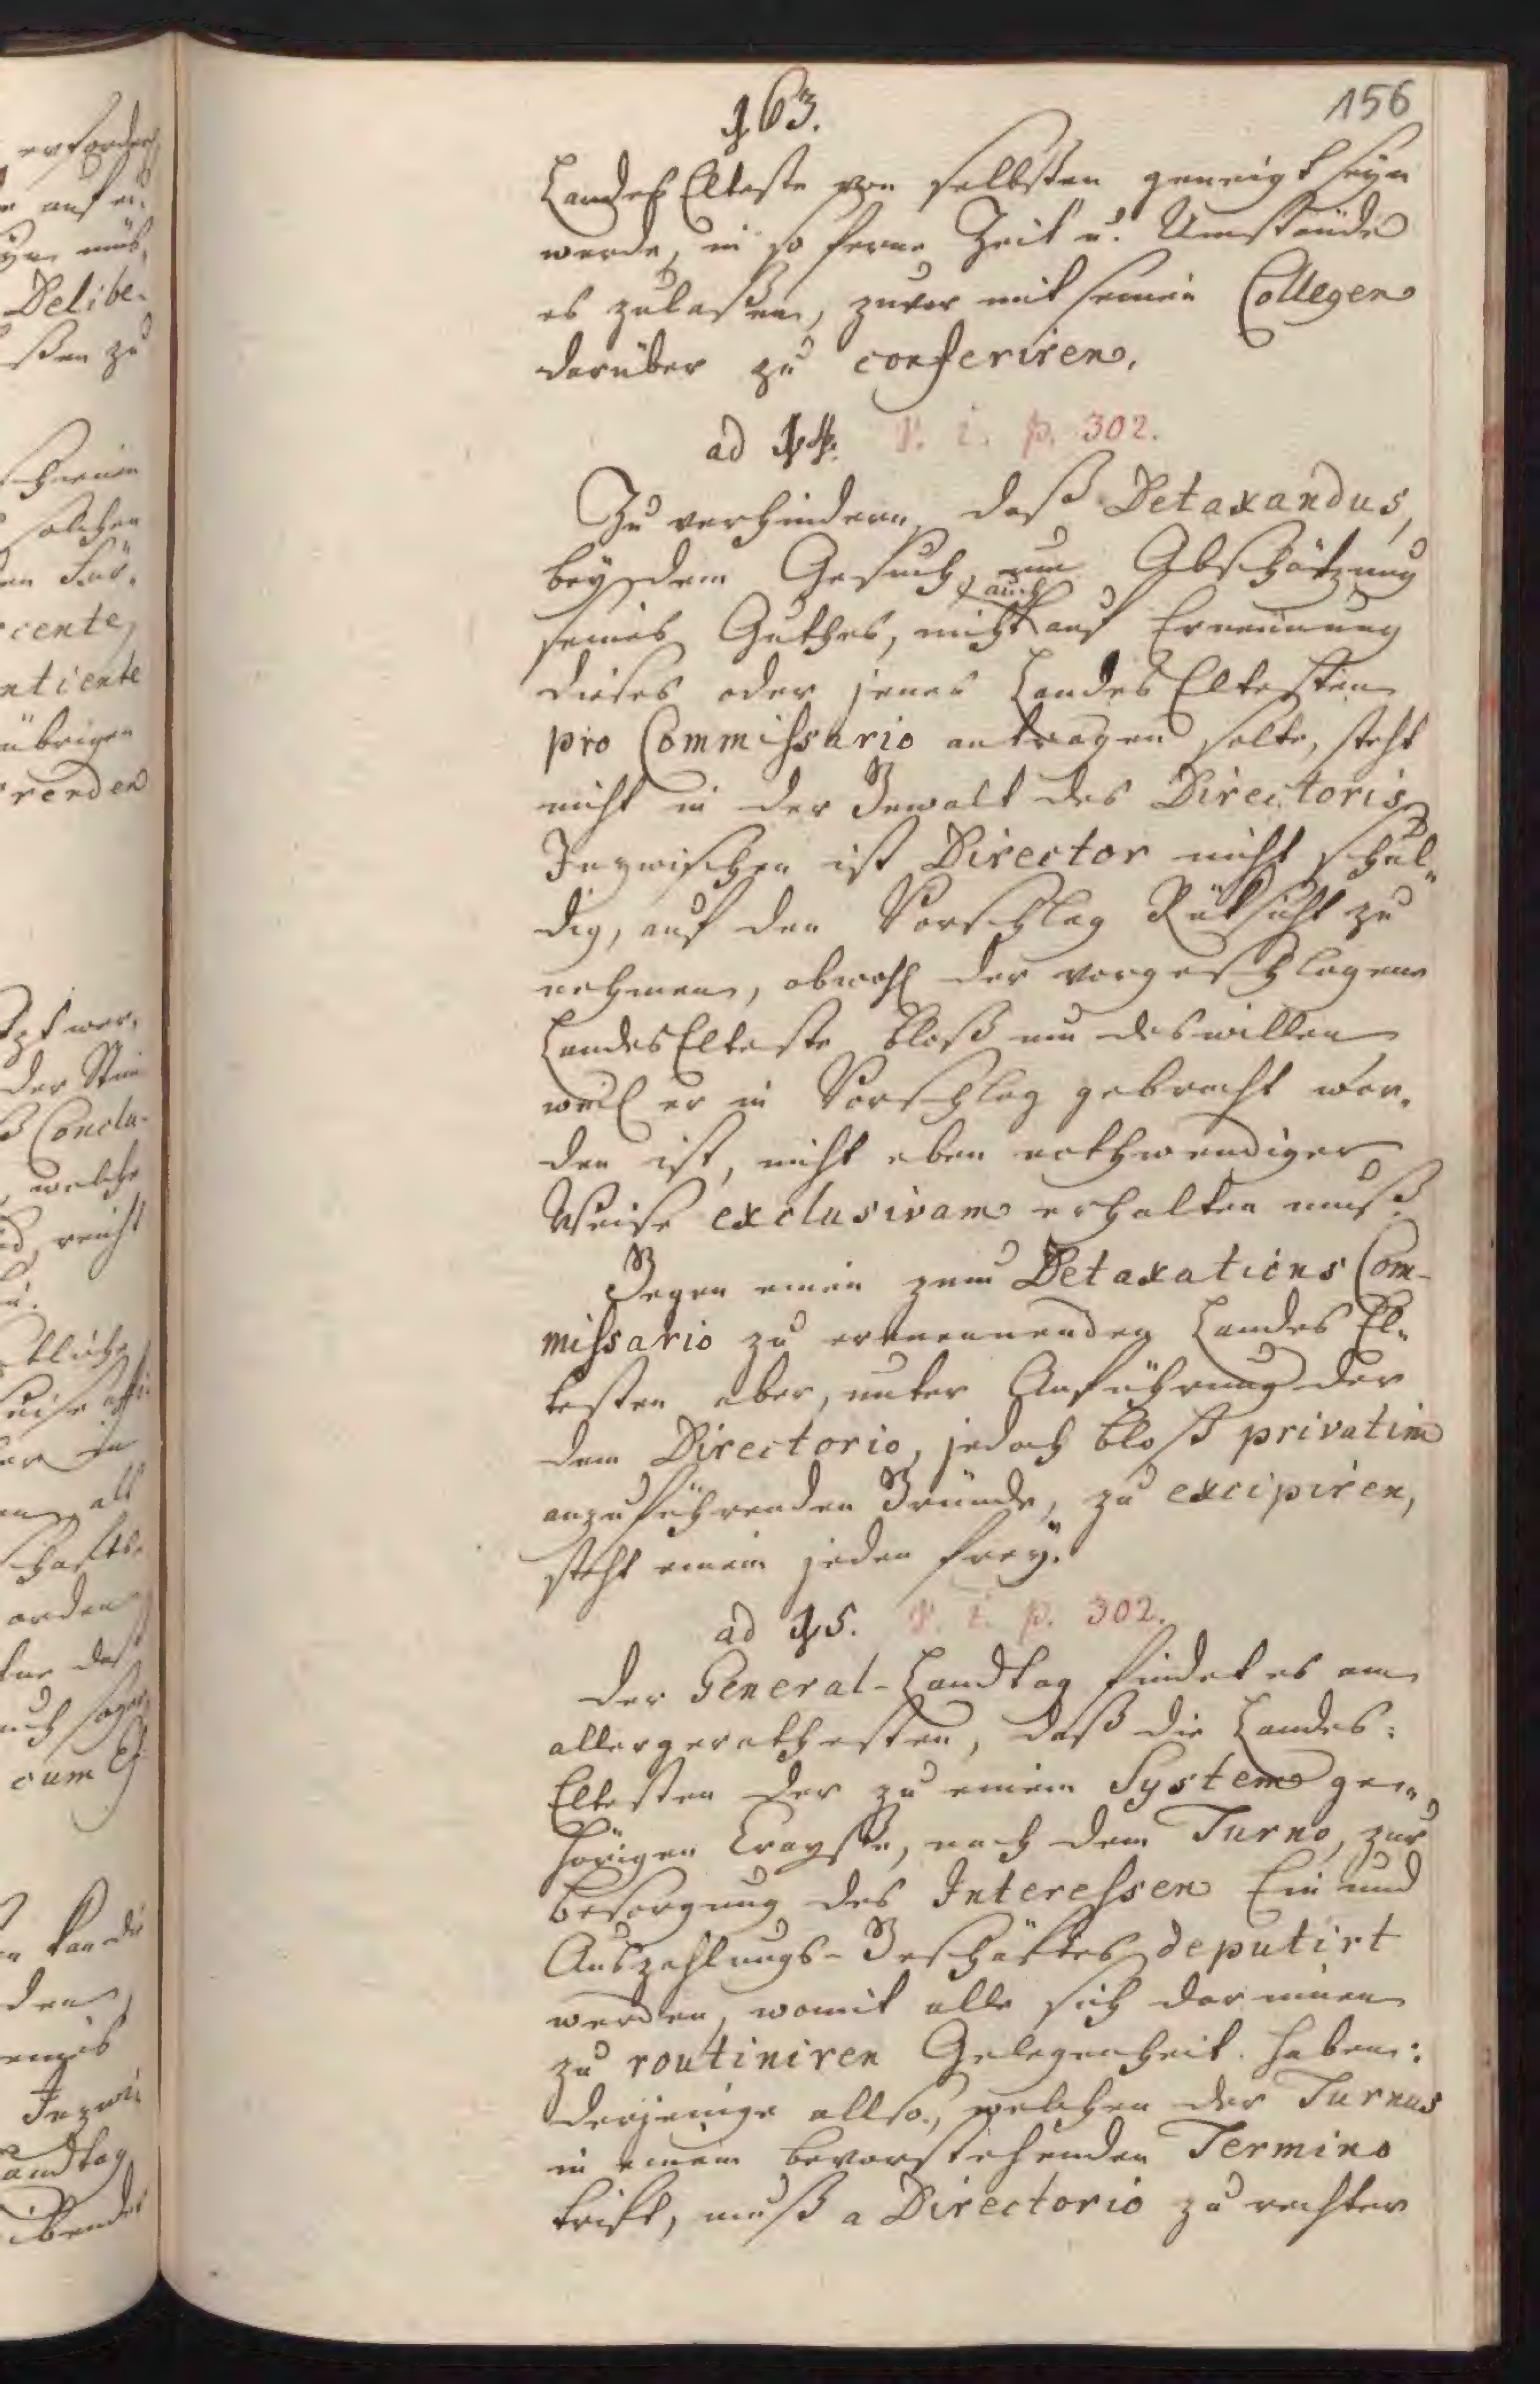 163.
156
Landes Elteste von selbsten geneigt seÿn
werde, in so ferne Zeit u. Umstände
es zulaßen, zuvor mit seinen Collegen
darüber zu conferiren.
ad § 4. P. I. p. 302.
Zu verhindern, daß Detaxandus,
beÿ dem Gesuch, um Abschätzung
seines Guthes, nicht auch auf Ernennung
dieses oder jenes Landes Eltesten
pro Commissario antragen solte, steht
nicht in der Gewalt des Directoris,
Inzwischen ist Director nicht schul„
dig, auf den Vorschlag Rüksicht zu
nehmen, obwohl der vorgeschlagene
Landes Elteste bloß um deswillen
weil er in Vorschlag gebracht wor„
den ist, nicht eben nothwendiger
Weise exclusivam erhalten muß.
Gegen einen zum Detaxations Com-
missario zu ernennenden Landes El„
testen aber, unter Anführung der
dem Directorio, jedoch bloß privatim
anzuführenden Gründe, zu excipiren,
steht einem jeden freÿ.
ad § 5. P. I. p. 302.
Der General-Landtag findet es am
allergerathesten, daß die Landes-
Eltesten der zu einem System ge„
hörigen Crayße, nach dem Turno, zur
Besorgung des Interessen Ein und
Auszahlungs-Geschäftes deputirt
werden, womit alle sich darinnen
zu routiniren Gelegenheit haben:
Derjenige allso, welchen der Turnus
in einem bevorstehenden Termino
trift, muß a Directorio zu rechter